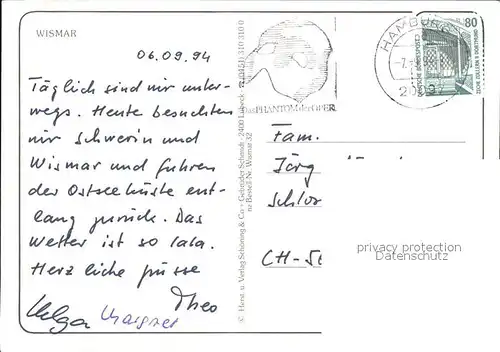 WISMAR
06.09.94
Täglich sind wir unter-
wegs. Heute besuchten
wir Schwerin und
Wismar und fuhren
der Ostseeküste ent-
lang zurück. Das
Wetter ist so lala.
Herzliche Grüsse
Theo
Helga Margret
© Horst u. Verlag Schöning & Co · Gebrüder Schmidt · 2400 Lübeck
Bestell Nr. Wismar 32
Das PHANTOM der OPER
HAMBURG
80
ZECHE ZOLLERN II DORTMUND
Fam.
Jörg
Schlo
CH-
privacy protection
Datenschutz